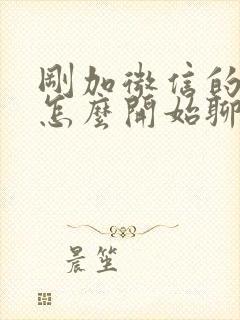 剛加微信的
怎麼開始聊
晨笙